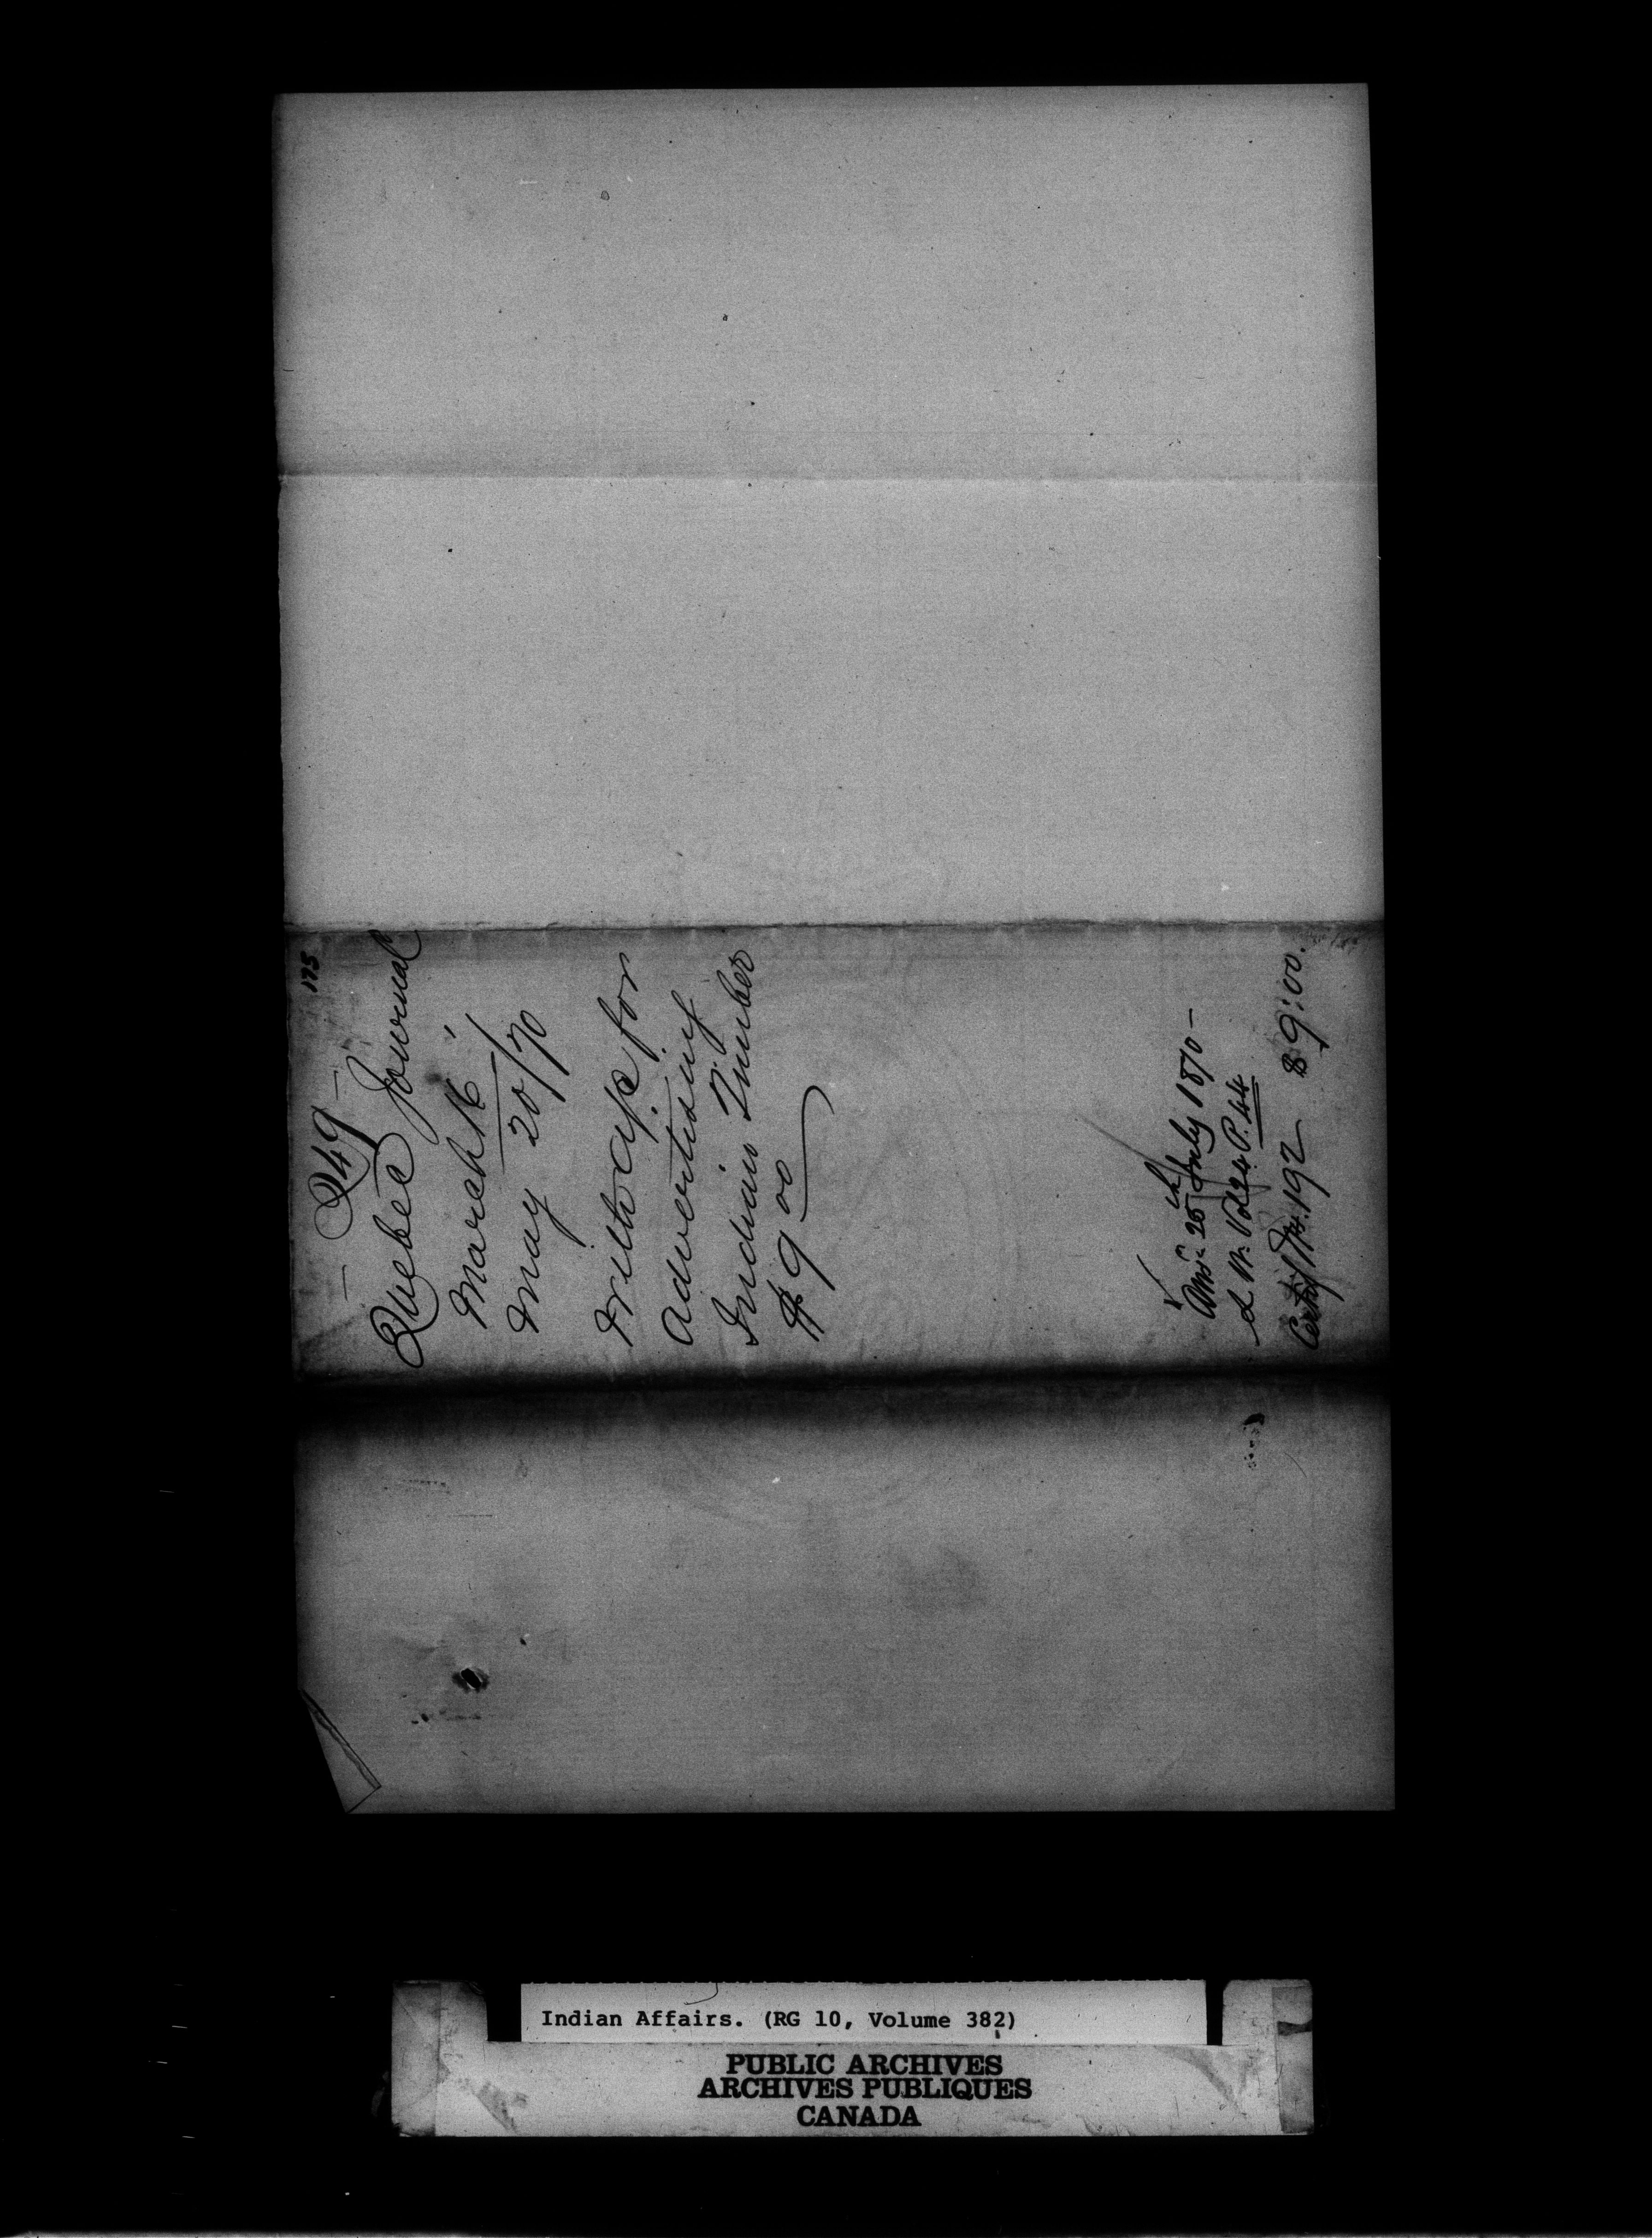 175
— Q49 —
Quebec Journal
March 16
May 20/70
With a/c for
Advertising
Indian Timber
$9 00
Ansd 25th July 1870 —
L. W. Vol 24 P. 44
Certify No. 192 $9:00.
Indian Affairs. (RG 10, Volume 382)
PUBLIC ARCHIVES
ARCHIVES PUBLIQUES
CANADA